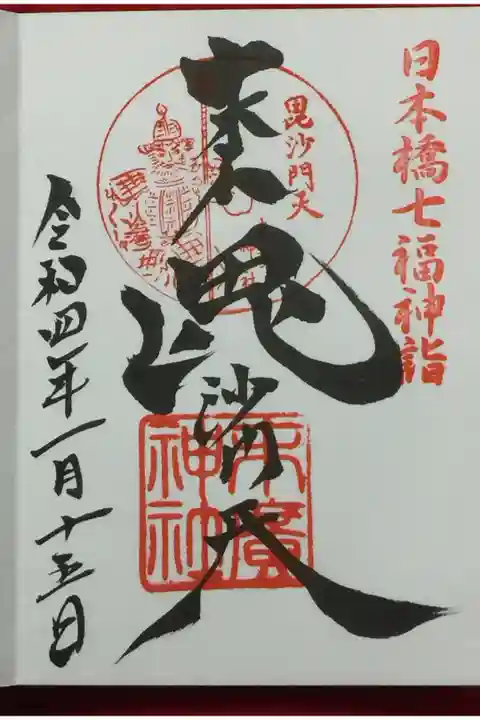 日本橋七福神詣
毘沙門天
毘沙門天
末廣
神社
令和四年一月十五日